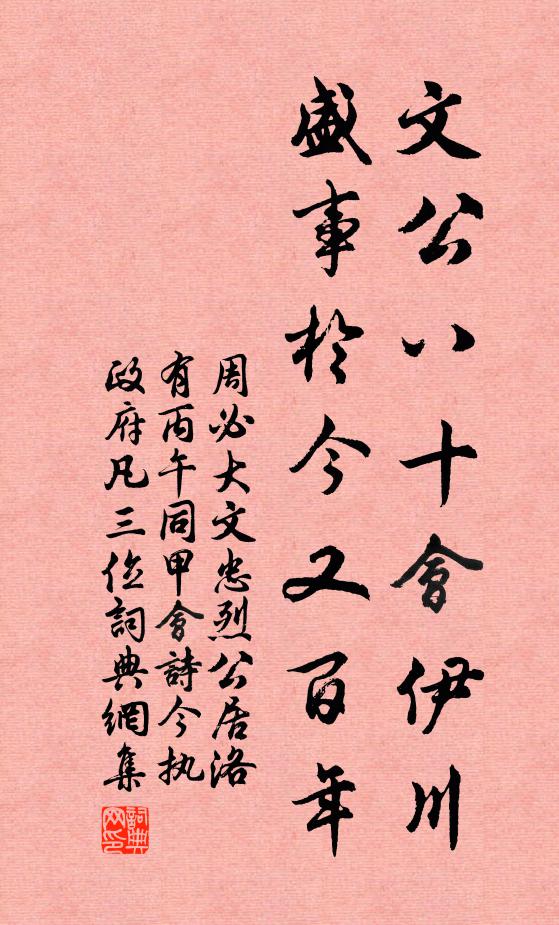 文公八十會伊川
盛事於今又百年
周必大文忠烈公居洛
有丙午同甲會詩今执
政府凡三位詞典網集
詞典
网印